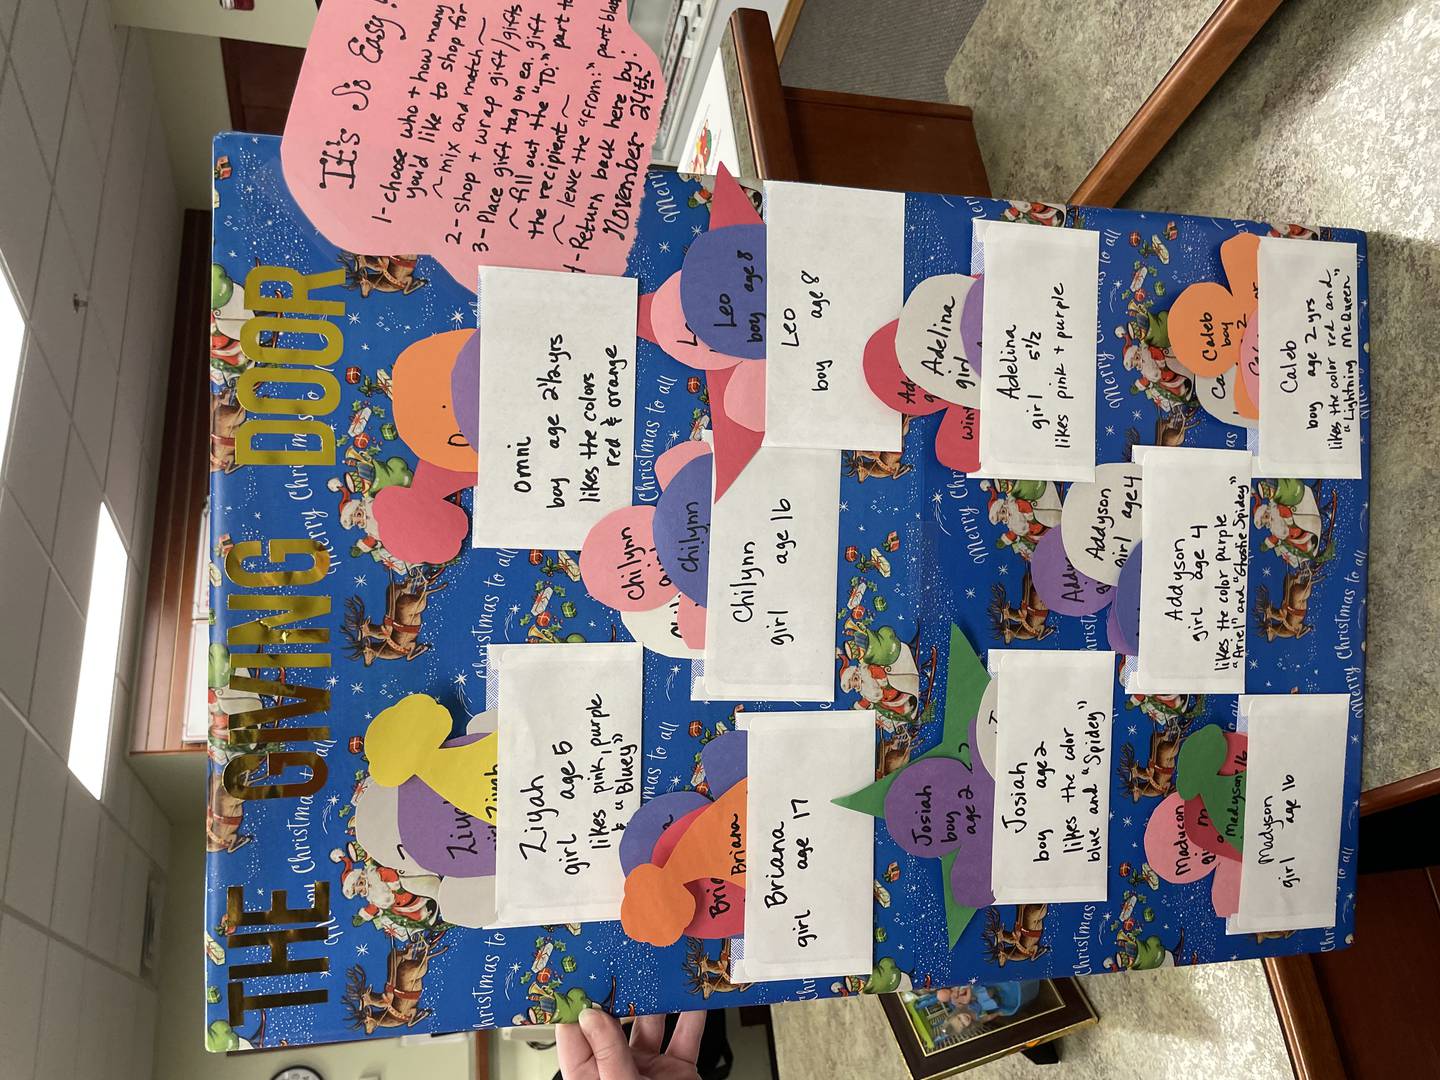 THE GIVING DOOR
It's So Easy!
1- choose who + how many
you'd like to shop for
~ mix and match ~
2- shop + wrap gift/gifts
3- Place gift tag on ea. gift
~ fill out the "TO:" part to
the recipient ~
~ leave the "from:" part blank
- Return back here by:
November 24th
Ziyah
girl age 5
likes pink, purple
& "Bluey"
Omni
boy age 2½ yrs
likes the colors
red & orange
Briana
Briana
girl age 17
Chilynn
Chilynn
Chilynn
girl age 16
Leo
boy age 8
Leo
boy age 8
Josiah
boy
age 2
Josiah
boy age 2
likes the color
blue and "Spidey"
Adelina
girl
Adelina
girl 5½
likes pink + purple
Addyson
girl age 4
Addyson
girl age 4
likes the color purple
"Ariel" and "Ghostie Spidey"
Madyson
Madyson
girl age 16
Caleb
boy
2
Caleb
boy age 2 yrs
likes the color red and
"Lightning McQueen"
Merry Christmas to all